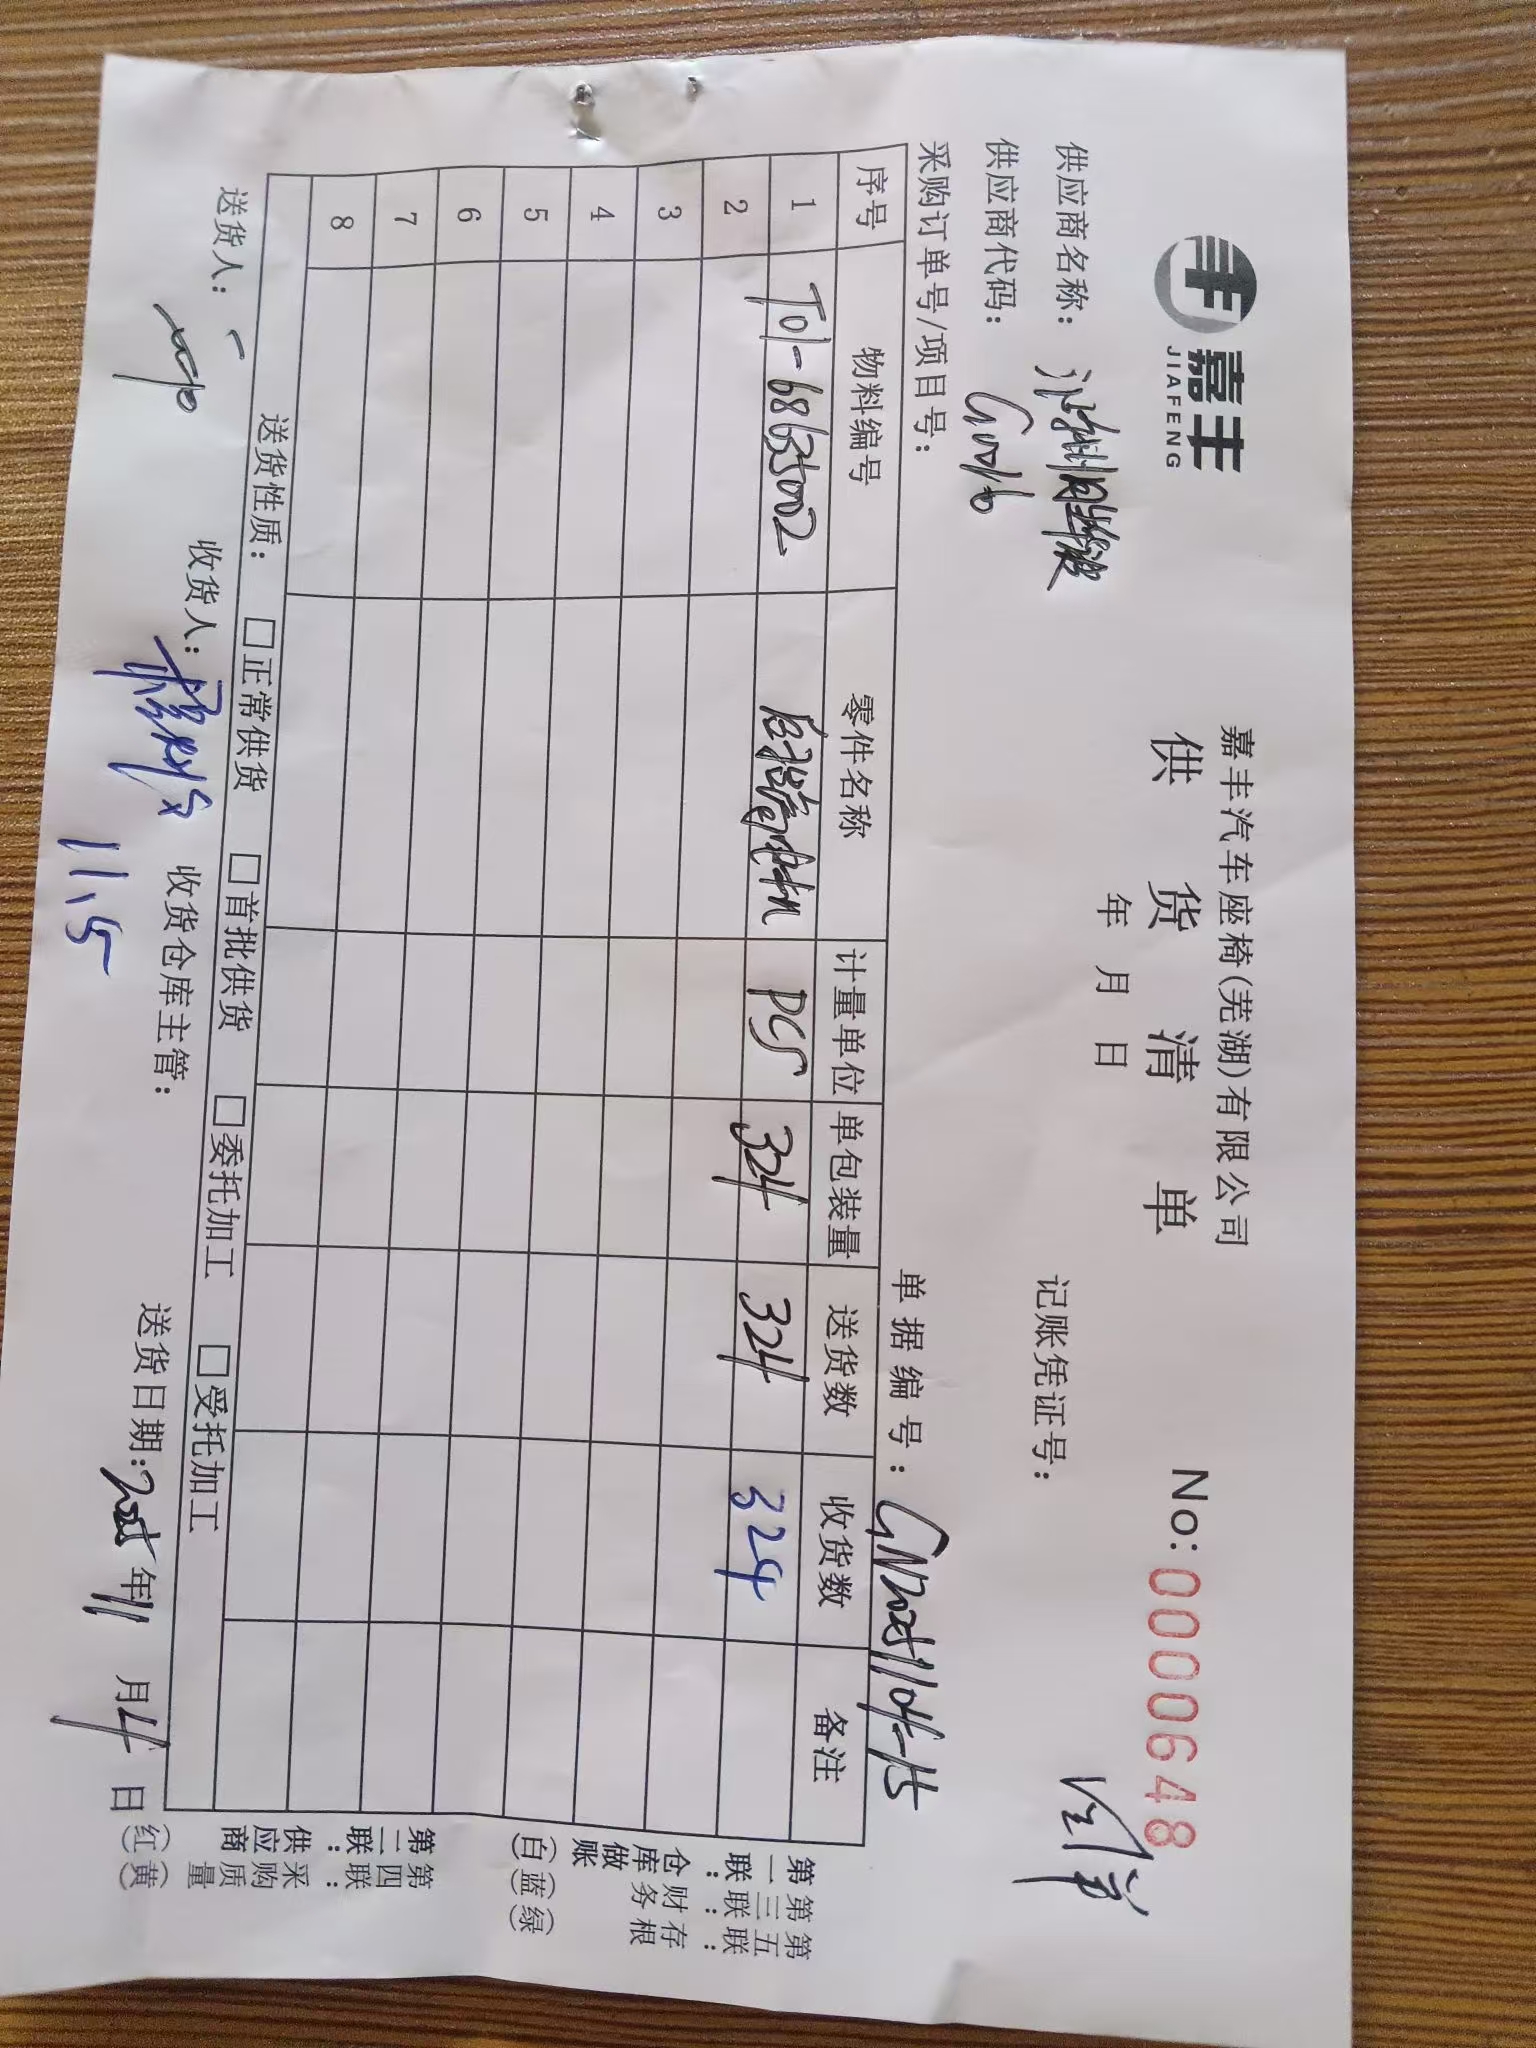 嘉丰
JIAFENG
嘉丰汽车座椅(芜湖)有限公司
供货清单
No: 0000648
年 月 日
供应商名称：
记账凭证号：
供应商代码： G0010
采购订单号/项目号：
单据编号：
序号 物料编号 零件名称 计量单位 单包装量 送货数 收货数 备注
1 T01-68635002 PCS 324 324 324
2
3
4
5
6
7
8
送货性质： □正常供货 □首批供货 □委托加工 □受托加工
送货人： 收货人： 11.5 收货仓库主管： 送货日期: 2025年11月4日
第一联：仓库做账(白)
第三联：财务(蓝)
第五联：存根(绿)
第二联：供应商(红)
第四联：采购质量(黄)